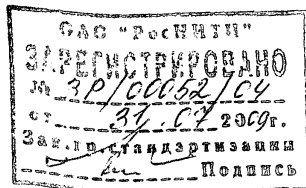 ОАО "РосНИТИ"
ЗАРЕГИСТРИРОВАНО
№ ЗР/00052/04
от 31.07 2009г.
Зав.гр.стандартизации
Подпись